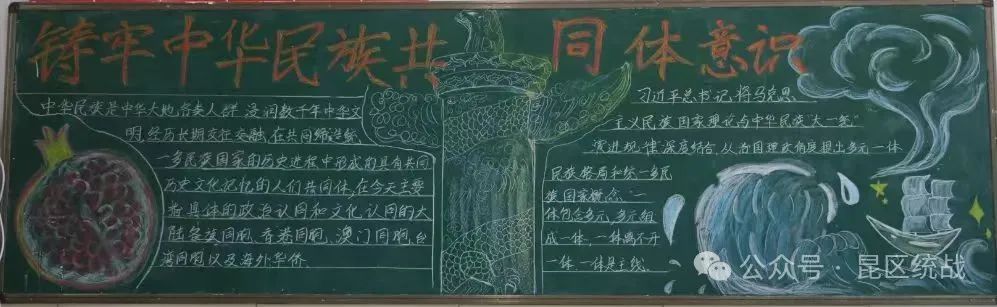 铸牢中华民族共同体意识
中华民族是中华大地各类人群浸润数千年中华文
明,经历长期交往交融,在共同缔造统
一多民族国家的历史进程中形成的具有共同
历史文化记忆的人们共同体,在今天主要
指具体的政治认同和文化认同的大
陆各族同胞,香港同胞,澳门同胞,台
湾同胞以及海外华侨.
习近平总书记,将马克思
主义民族国家理论与中华民族“大一统”
演进规律深度结合,从治国理政角度提出多元一体
民族格局和统一多民
族国家概念.
体包含多元,多元组
成一体,一体离不开
一体,一体是主线.
公众号·昆区统战